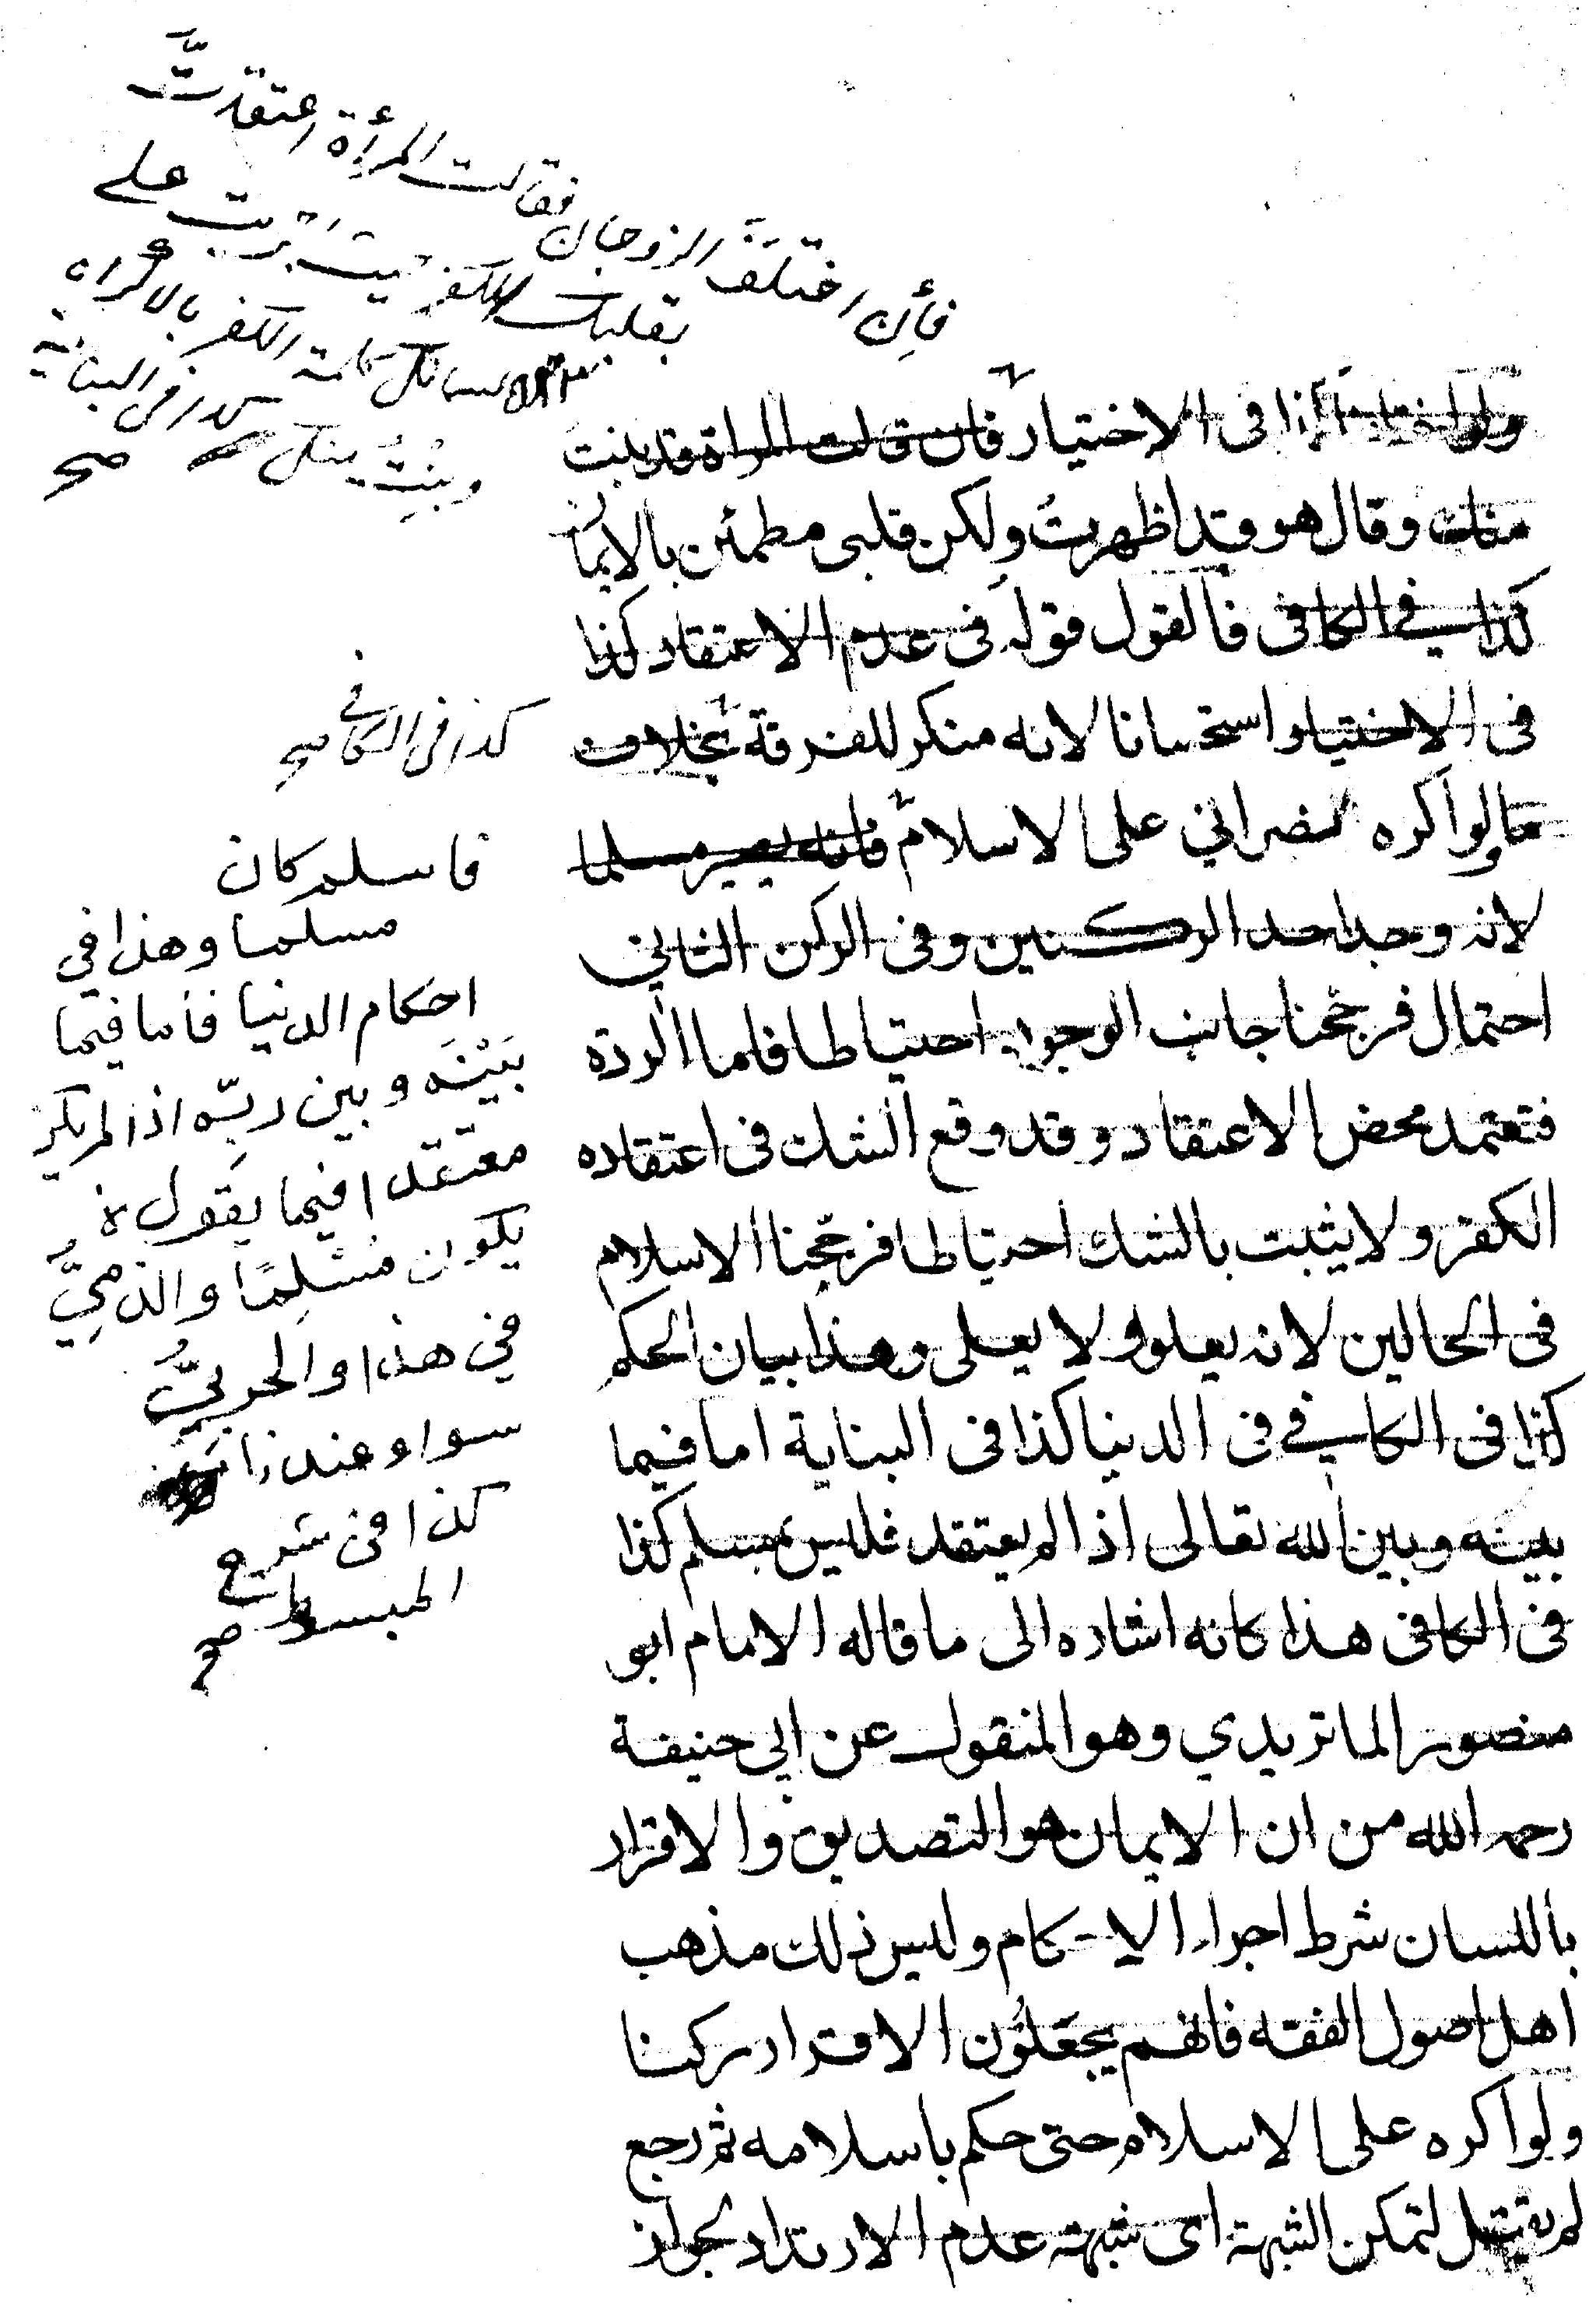 فأن اختلف الزوجان فقالت المرأة اعتقدت
بقلبك الكفر حيث تربت على
مسائل كلمة الكفر بالاكراه
وبنت منك كذا فى البناية صح
فى الاختيار فان قالت المراة قد بنت
منك وقال هو قد اظهرت ولكن قلبى مطمئن بالايمان
كذا في الكافى فالقول قوله فى عدم الاعتقاد كذا
فى الاختيار استحسانا لانه منكر للفرقة بخلاف
كذا فى الكافي صح
ما لو اكره نصراني على الاسلام فانه يصير مسلما
لانه وجد احد الركنين وفى الركن الثاني
احتمال فرجحنا جانب الوجود احتياطا فاما الردة
فتعتمد محض الاعتقاد وقد وقع الشك فى اعتقاده
الكفر ولا يثبت بالشك احتياطا فرجحنا الاسلام
فى الحالين لانه يعلو ولا يعلى وهذا بيان الحكم
كذا فى الكافي فى الدنيا كذا فى البناية اما فيما
بينه وبين الله تعالى اذا لم يعتقد فليس بمسلم كذا
فى الكافى هذا كانه اشاره الى ما قاله الامام ابو
منصور الماتريدي وهو المنقول عن ابي حنيفة
رحمه الله من ان الايمان هو التصديق والاقرار
باللسان شرط اجراء الاحكام وليس ذلك مذهب
اهل اصول الفقه فانهم يجعلون الاقرار ركنا
ولو اكره على الاسلام حتى حكم باسلامه ثم رجع
لم يقتل لتمكن الشبهة اى شبهة عدم الارتداد لجواز
فاسلم كان
مسلما وهذا في
احكام الدنيا فأما فيما
بَيْنَه وبين ربّه اذا لم يكن
معتقدا فيما يقول لا
يكون مُسْلِمًا والذمِيُّ
في هذا والحربيُّ
سواء عندنا
كذا فى شرح
المبسوط صح